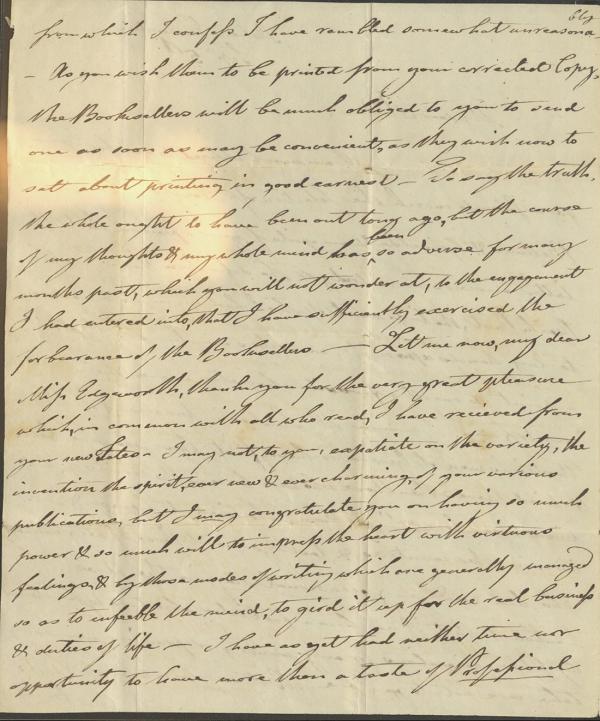 from which I confess I have rambled somewhat unreasona-
bly
– As you wish them to be printed from your corrected Copy,
the Booksellers will be much obliged to you to send
one as soon as may be convenient, as they wish now to
set about printing in good earnest – To say the truth,
the whole ought to have been out long ago, but the course
of my thoughts & my whole mind has been so adverse for many
months past, which you will not wonder at, to the engagement
I had entered into, that I have sufficiently exercised the
forbearance of the Booksellers — Let me now, my dear
Miss Edgeworth, thank you for the very great pleasure
which, in common with all who read, I have recieved from
your new Tales – I may not, to you, expatiate on the variety, the
invention the spirit, ever new & ever charming, of your various
publications, but I may congratulate you on having so much
power & so much will to impress the heart with virtuous
feelings, & by those modes of writing which are generally managed
so as to infeeble the mind, to gird it up for the real business
& duties of life – I have as yet had neither time nor
opportunity to have more than a taste of Professional